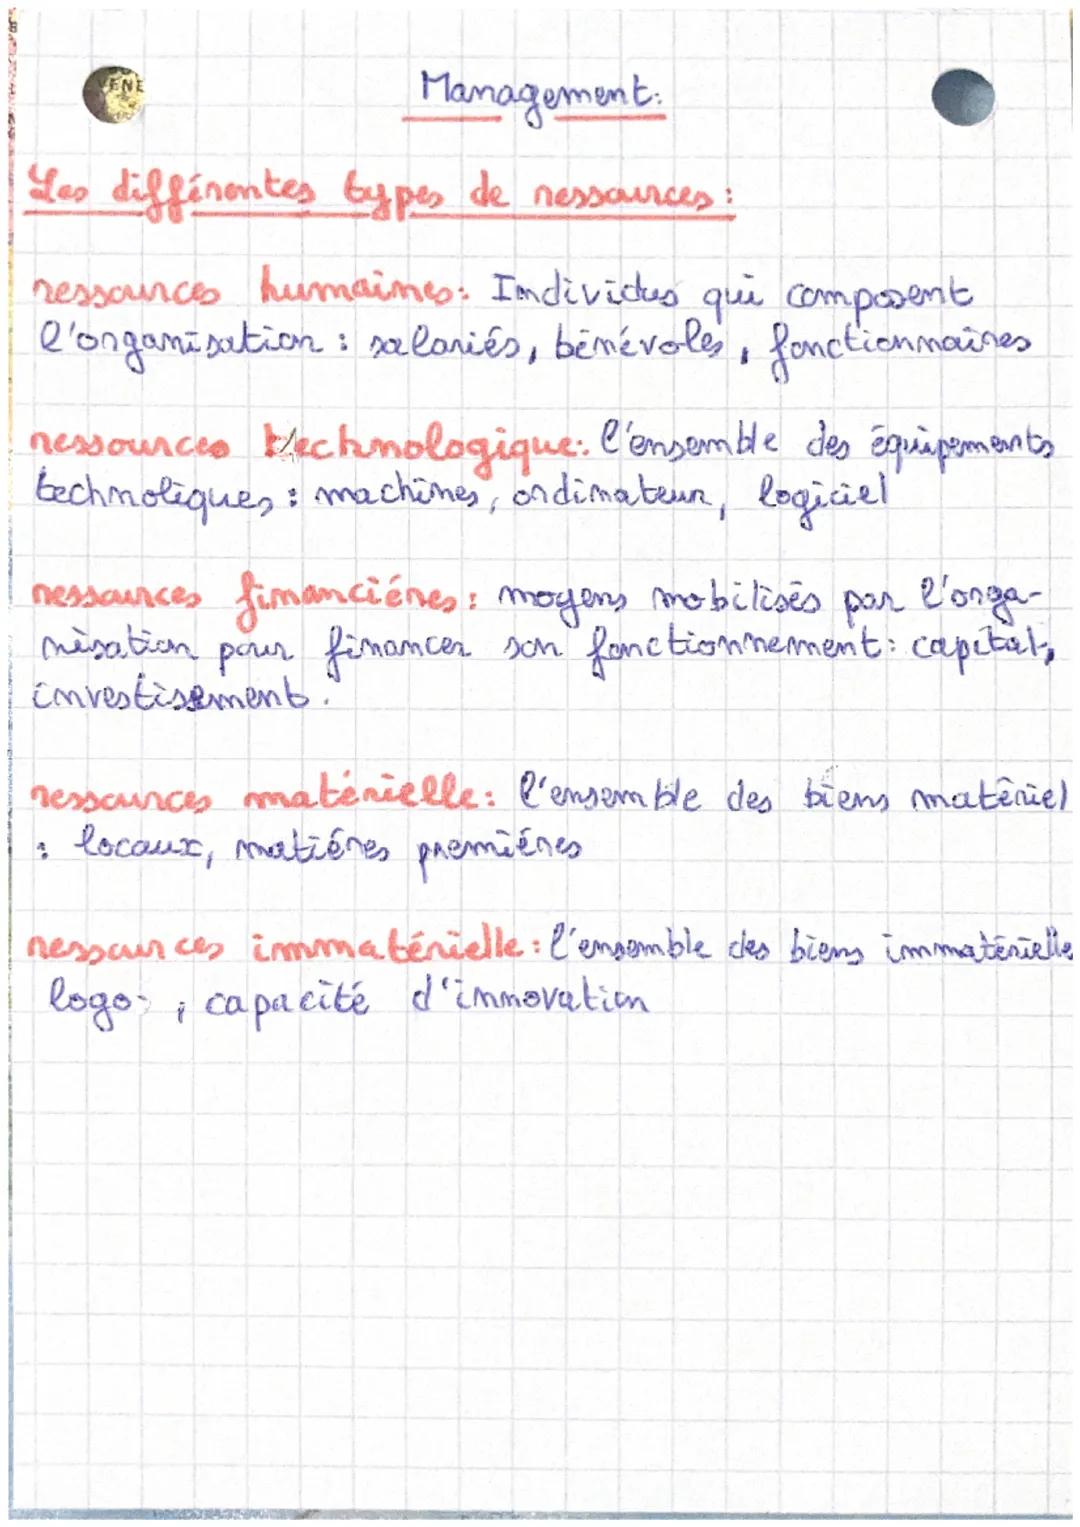 VENE
Management:
Les différentes types de ressources :
ressources humaines: Individus qui composent
l'organisation : salariés, bénévoles, fonctionnaires
ressources technologique: l'ensemble des équipements
technoliques : machines, ordinateur, logiciel
ressources financiéres : moyens mobilisés par l'orga-
nisation pour financer son fonctionnement : capital,
investisement.
ressources matérielle : l'ensemble des biens matériel
: locaux, matiéres premiéres
ressources immatérielle : l'ensemble des biens immatérielle
logo , capacité d'innovation